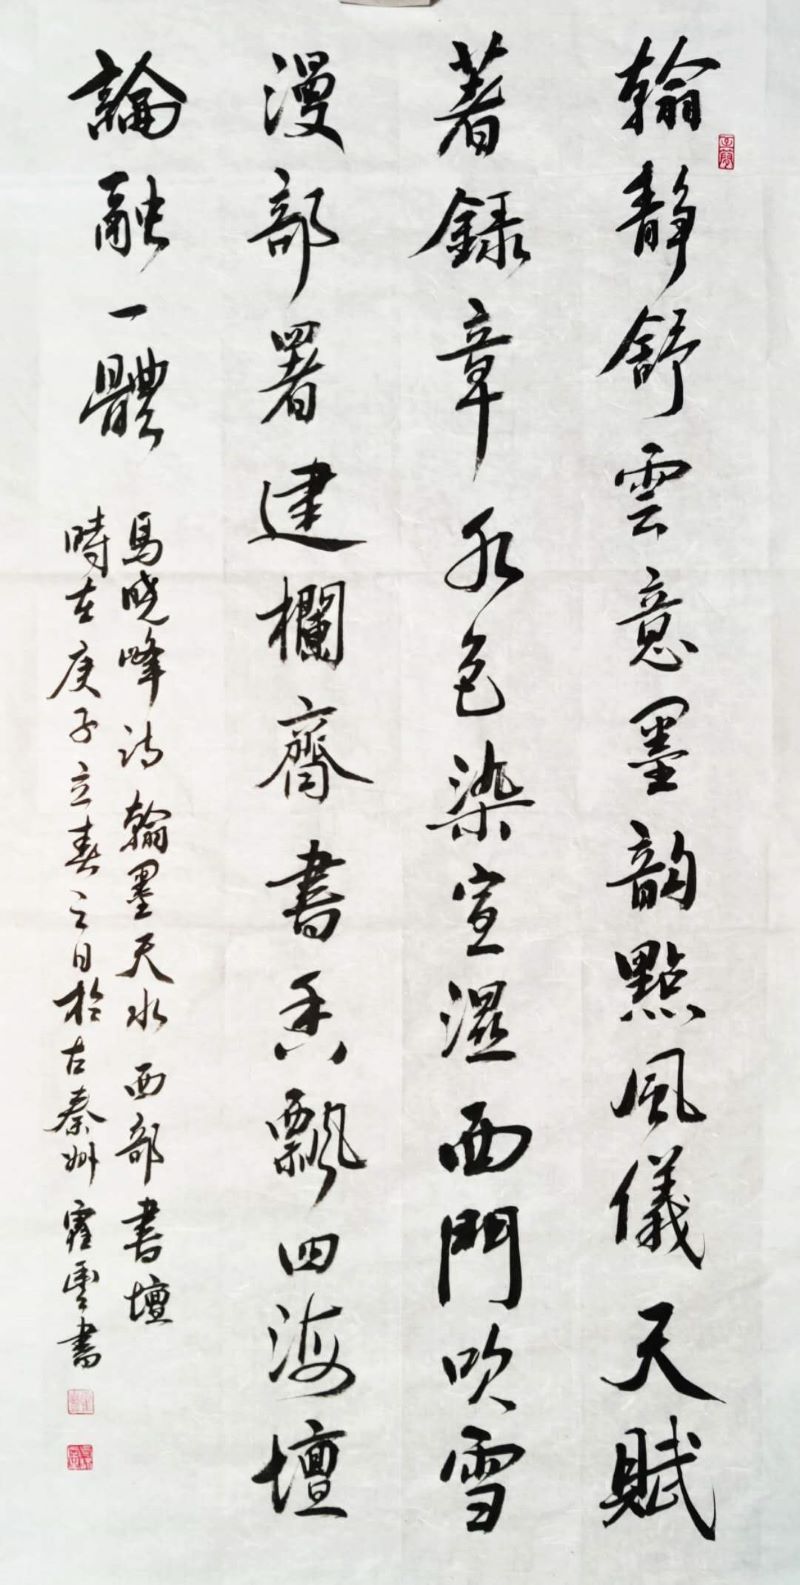 翰靜舒雲意墨韵點風儀天賦
著錄章水色染宣濕西門吹雪
漫部署建欄齋書香飄四海壇
論融一體
馬曉峰詩翰墨天水西部書壇
時在庚子立春之日於古秦州霍雲書